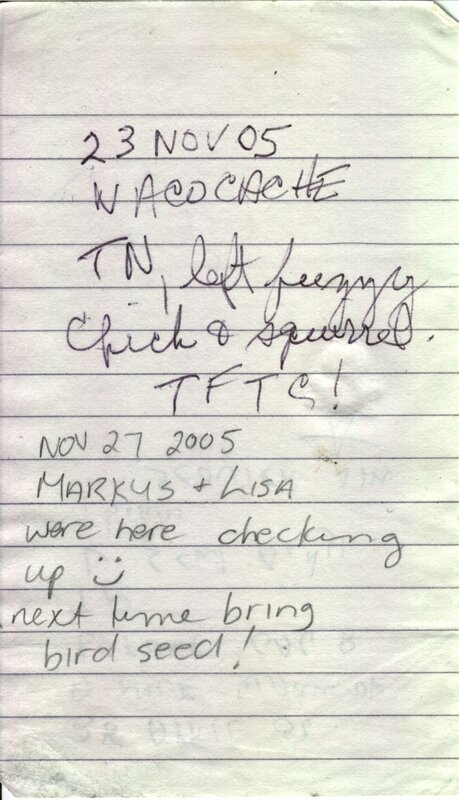 23 NOV 05
WACOCACHE
TN, left fuzzy
Chick & squirrel.
TFTC!
NOV 27 2005
MARKUS + LISA
were here checking
up :)
next time bring
bird seed!